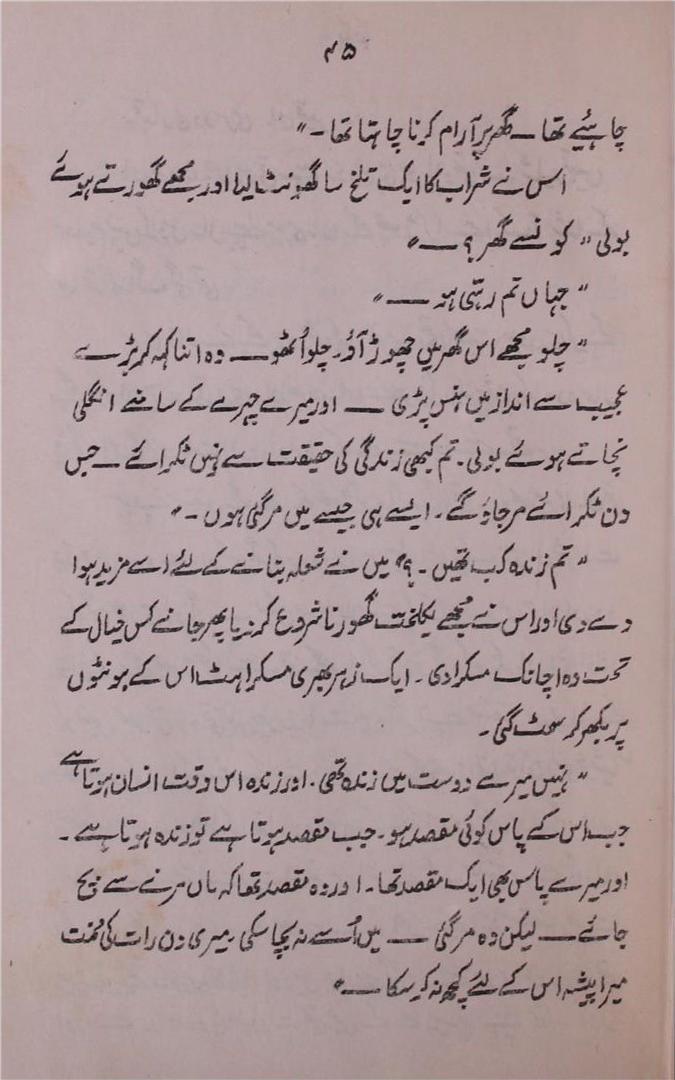 ۴۵
چاہئیے تھا ــ گھر پر آرام کرنا چاہتا تھا ــ "
اس نے شراب کا ایک تلخ سا گھونٹ لیا اور مجھے گھورتے ہوئے
بولی " کونسے گھر ؟ ــــ "
" جہاں تم رہتی ہو ــــ "
" چلو مجھے اس گھر میں چھوڑ آؤ۔ چلو اُٹھو ــــ وہ اتنا کہہ کر بڑے
عجیب سے انداز میں ہنس پڑی ــــ اور میرے چہرے کے سامنے انگلی
نچاتے ہوئے بولی۔ تم کبھی زندگی کی حقیقت سے نہیں ٹکرائے ــ جس
دن ٹکرائے مر جاؤ گے۔ ایسے ہی جیسے میں مر گئی ہوں ــ "
" تم زندہ کب تھیں ۔ ؟ " میں نے شعلہ بنانے کے لئے اسے مزید ہوا
دے دی اور اس نے مجھے یکلخت گھورنا شروع کر دیا پھر جانے کس خیال کے
تحت وہ اچانک مسکرا دی ۔ ایک زہر بھری مسکراہٹ اس کے ہونٹوں
پر بکھر کر سمٹ گئی ۔
" نہیں میرے دوست میں زندہ تھی۔ اور زندہ اس وقت انسان ہوتا ہے
جب اس کے پاس کوئی مقصد ہو۔ جب مقصد ہوتا ہے تو زندہ ہوتا ہے ۔
اور میرے پاس بھی ایک مقصد تھا۔ اور وہ مقصد تھا کہ ماں مرنے سے بچ
جائے ــــ لیکن وہ مر گئی ــــ میں اُسے نہ بچا سکی ۔ میری دن رات کی محنت
میرا پیشہ اس کے لئے کچھ نہ کر سکا ــــ "